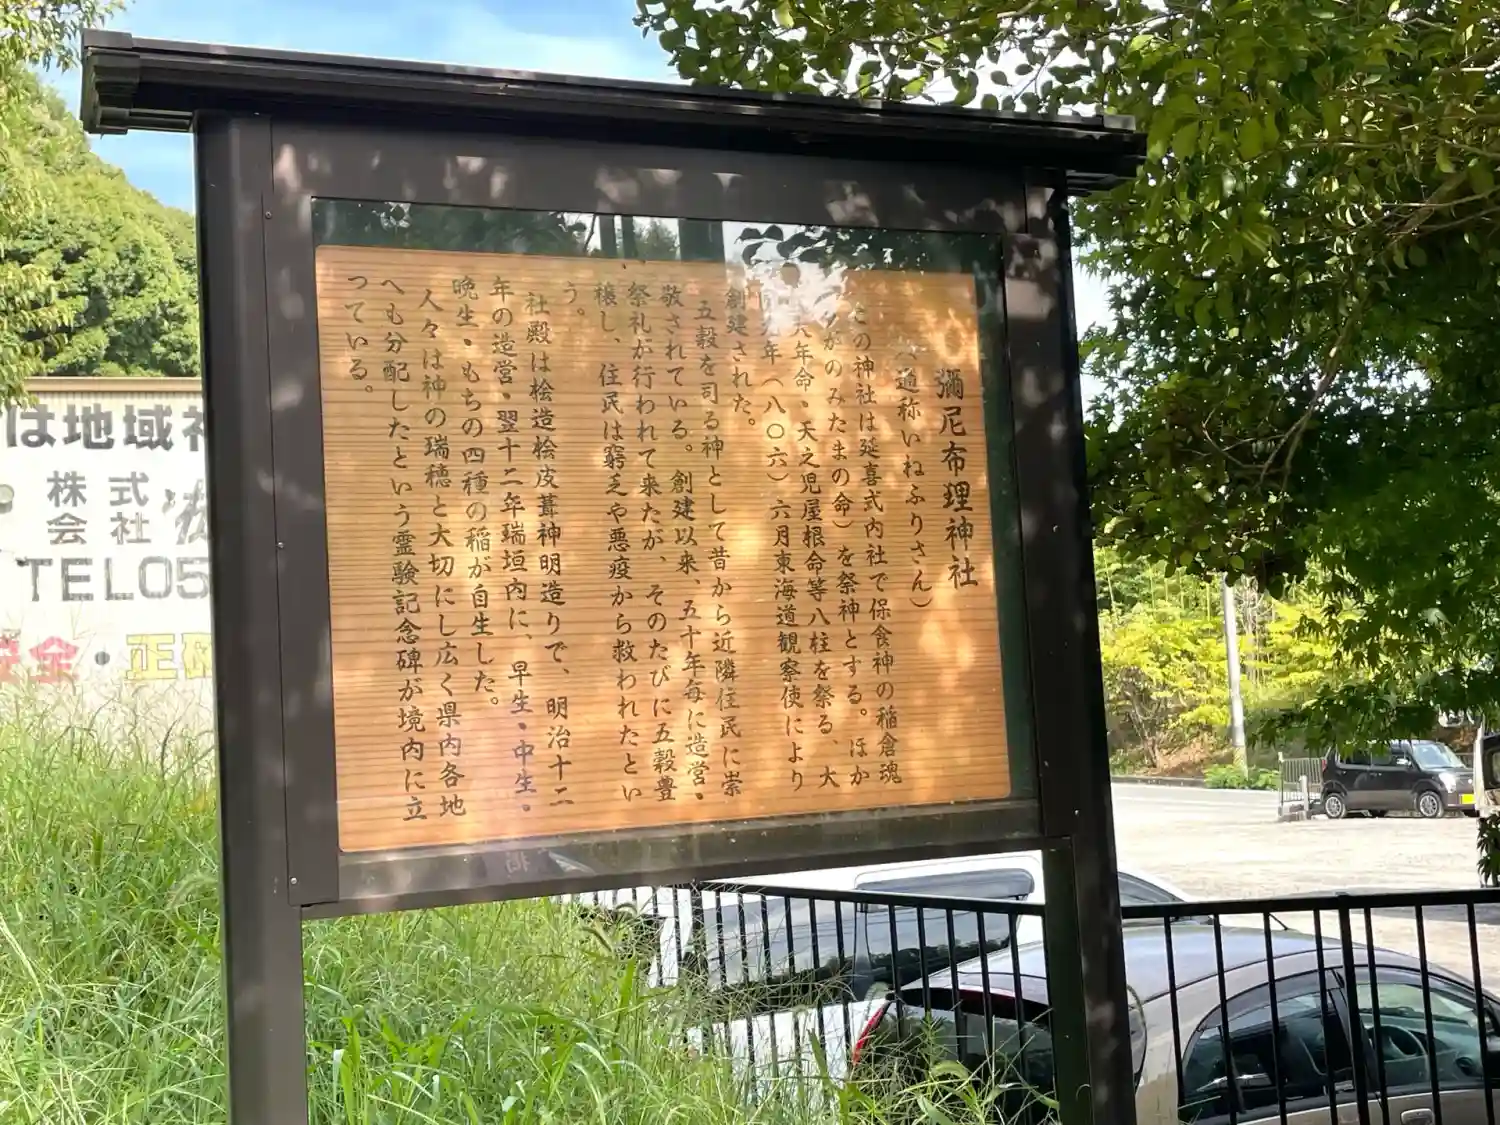 彌尼布理神社
通称いねふりさん)
この神社は延喜式内社で保食神の稲倉魂
がのみたまの命)を祭神とする。ほか
大年命・天之児屋根命等八柱を祭る、大
元年(八〇六)六月東海道観察使により
創建された。
五穀を司る神として昔から近隣住民に崇
敬されている。創建以来、五十年毎に造営・
祭礼が行われて来たが、そのたびに五穀豊
穣し、住民は窮乏や悪疫から救われたとい
う。
社殿は桧造桧皮葺神明造りで、明治十二
年の造営・翌十二年瑞垣内に、早生・中生・
晩生・もちの四種の稲が自生した。
人々は神の瑞穂と大切にし広く県内各地
へも分配したという霊験記念碑が境内に立
っている。
は地域
株式
会社
TEL05
安全・正確